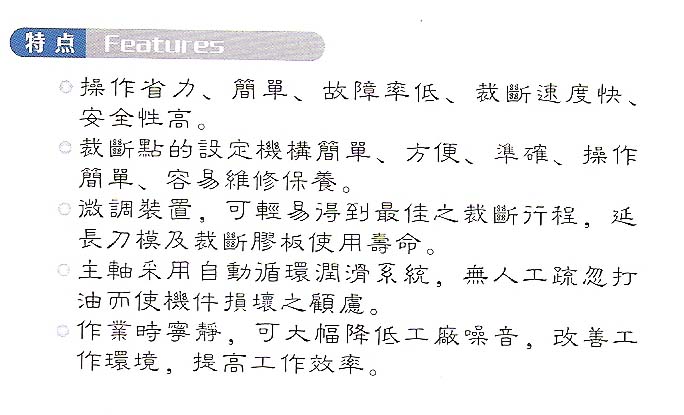 特点 Features
操作省力、簡單、故障率低、裁斷速度快、
安全性高。
裁斷點的設定機構簡單、方便、準確、操作
簡單、容易維修保養。
微調裝置，可輕易得到最佳之裁斷行程，延
長刀模及裁斷膠板使用壽命。
主軸采用自動循環潤滑系統，無人工疏忽打
油而使機件損壞之顧慮。
作業時寧靜，可大幅降低工廠噪音，改善工
作環境，提高工作效率。